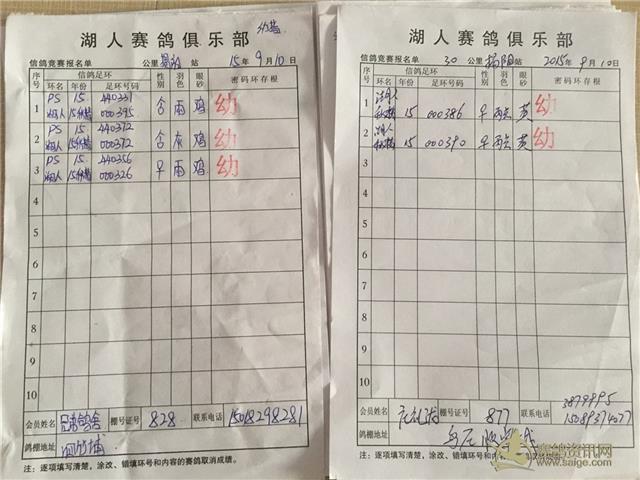 幼鸽
湖人赛鸽俱乐部
信鸽竞赛报名单 公里 揭阳 站 15年9月10日
序号 信鸽足环 性别 羽色 眼砂 密码环存根
环名 年份 足环号码
1 PS 15 440331 雨 鸡 幼
湖人 000395
2 PS 15 440372 灰 鸡 幼
湖人 000372
3 PS 15 440356 雨 鸡 幼
湖人 000326
4
5
6
7
8
9
10
会员姓名 兄弟鸽舍 棚号证号 828 联系电话 15018298281
鸽棚地址
注:逐项填写清楚,涂改、错填环号和内容的赛鸽取消成绩。
湖人赛鸽俱乐部
信鸽竞赛报名单 30 公里 揭阳 站 2015年9月10日
序号 信鸽足环 性别 羽色 眼砂 密码环存根
环名 年份 足环号码
1 湖人 15 000386 黄 幼
2 湖人 15 000390 黄 幼
3
4
5
6
7
8
9
10
会员姓名 棚号证号 877 联系电话 3879995
15089374077
鸽棚地址
注:逐项填写清楚,涂改、错填环号和内容的赛鸽取消成绩。
赛鸽资讯网
www.saige.com